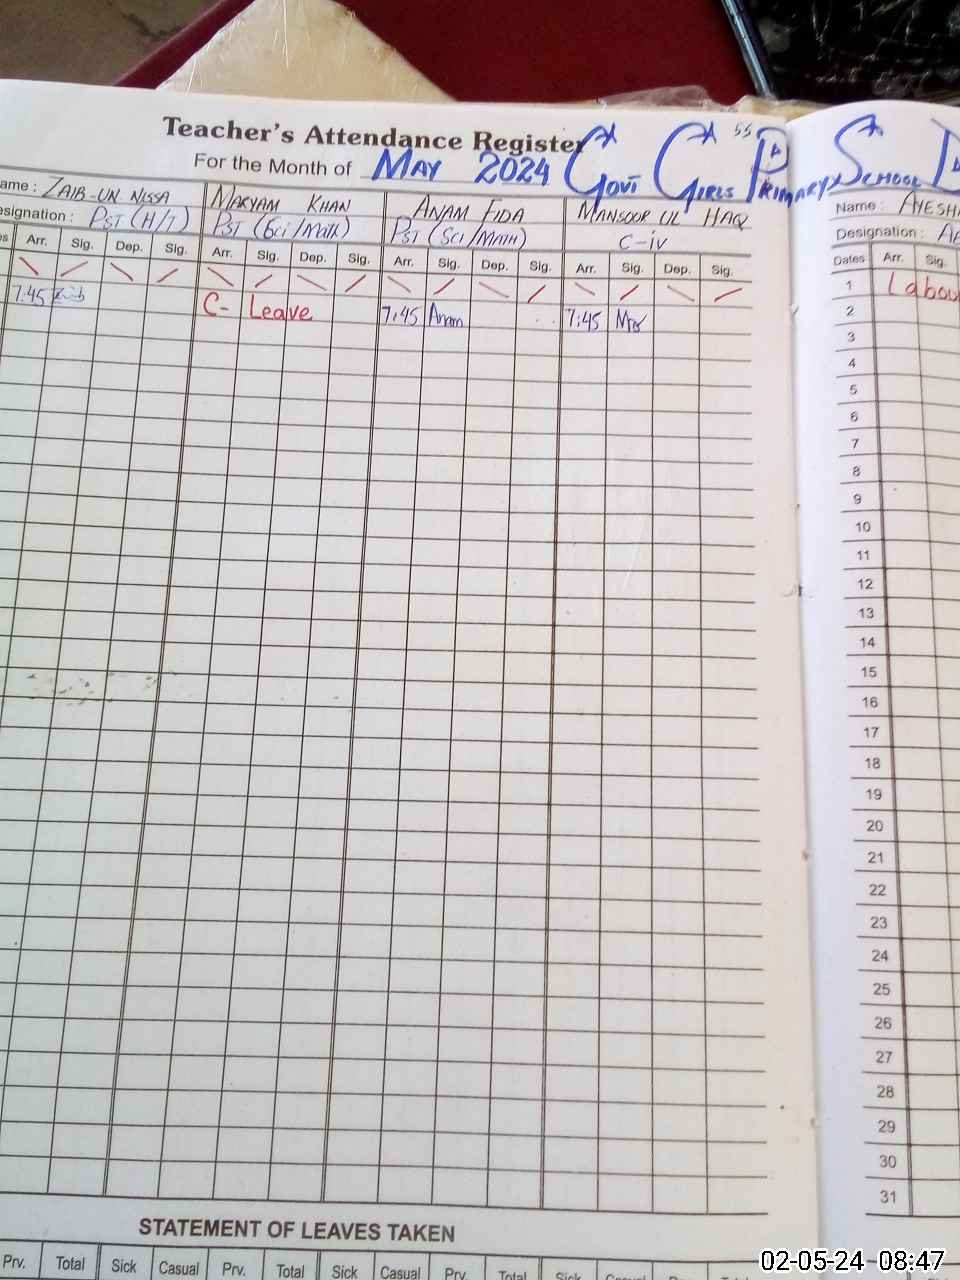 Teacher's Attendance Register
For the Month of MAY 2024 GOVT GIRLS PRIMARY SCHOOL
ame : ZAIB-UN NISSA MARYAM KHAN ANAM FIDA MANSOOR UL HAQ
esignation : PST (H/T) PST (Sci/Math) PST (SCI/MATH) C-iv
es Arr. Sig. Dep. Sig. Arr. Sig. Dep. Sig. Arr. Sig. Dep. Sig. Arr. Sig. Dep. Sig.
7:45 C- Leave 7:45 Anam 7:45
Name : AYESH
Designation :
Dates Arr. Sig.
1 Labou
2
3
4
5
6
7
8
9
10
11
12
13
14
15
16
17
18
19
20
21
22
23
24
25
26
27
28
29
30
31
STATEMENT OF LEAVES TAKEN
Prv. Total Sick Casual Prv. Total Sick Casual Prv. Total Sick Casual Prv. Total
02-05-24 08:47